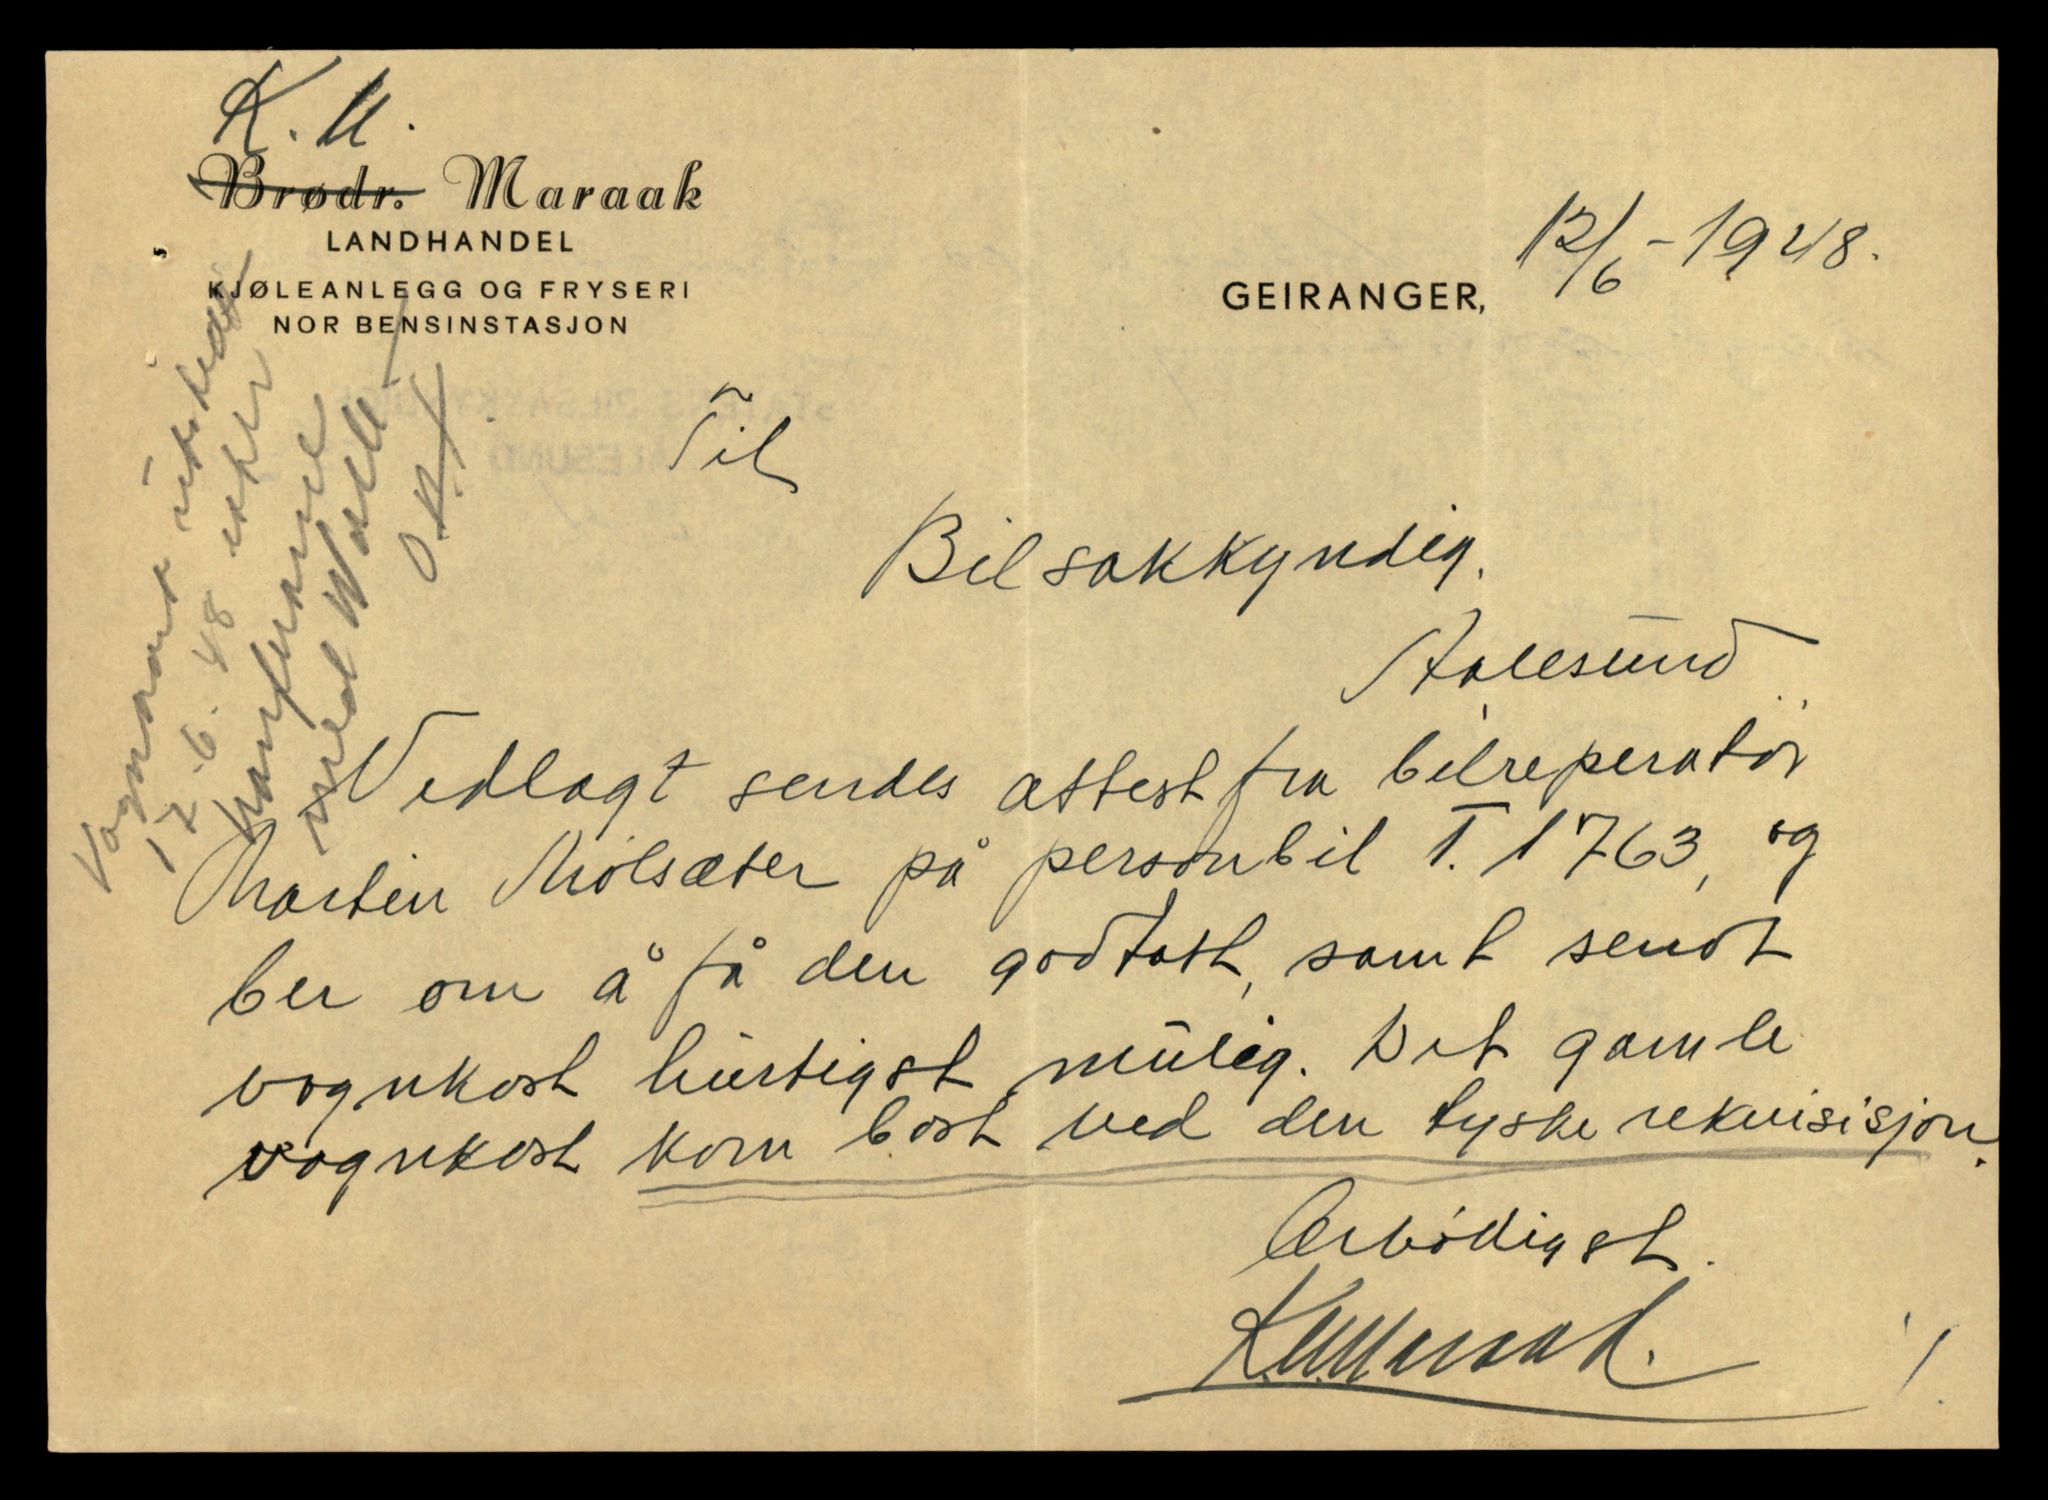 K. M.
Brødr. Maraak
LANDHANDEL
KJØLEANLEGG OG FRYSERI
NOR BENSINSTASJON
GEIRANGER, 12/6 - 1948.
Til
Bilsakkyndig.
Aalesund
Vedlagt sendes attest fra bilreperatör
Martin Mölsæter på personbil T. 1763, og
ber om å få den godtatt, samt sendt
vognkort hurtigst mulig. Det gamle
vognkort kom bort ved den tyske rekvisisjon.
Ærbödigst.
K.M. Maraak.
Vognkort utstedt
17.6.48 etter
konferanse
med